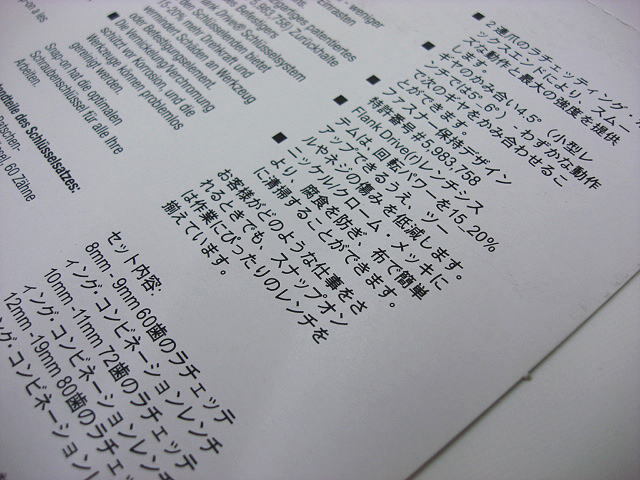 weniger
patentiertes
5.983.758) Zurückhalte
des Befestigers
Drive® Schlüsselsystem
den Schlüsselenden bietet
15-20% mehr Drehkraft und
vermindert Schäden an Werkzeug
oder Befestigungselement.
Die Vernickelung/Verchromung
schützt vor Korrosion, und die
Werkzeuge können problemlos
gereinigt werden.
Snap-on hat die optimalen
Schraubenschlüssel für alle Ihre
Arbeiten.
des Schlüsselsatzes:
60 Zähne
■ 2連爪のラチェッティング・
ップスエンドにより、スムー
ズな動作と最大の強度を提供
します。
■ ギヤのかみ合い4.5°(小型レ
ンチでは5-6°)-わずかな動作
で次のギヤをかみ合わせるこ
とができます。
■ ファスナー保持デザイン
特許番号#5,983,758
■ Flank Drive(r)レンチンス
テムは、回転パワーを15_20%
アップできるうえ、ツー
ルやネジの傷みを低減します。
■ ニッケル/クローム・メッキに
より、腐食を防ぎ、布で簡単
に清掃することができます。
お客様がどのような仕事をさ
れるときでも、スナップオン
は作業にぴったりのレンチを
揃えています。
セット内容:
8mm - 9mm 60歯のラチェッテ
ィング・コンビネーションレンチ
10mm -11mm 72歯のラチェッテ
ィング・コンビネーションレンチ
12mm -19mm 80歯のラチェッ
ング・コンビネーション